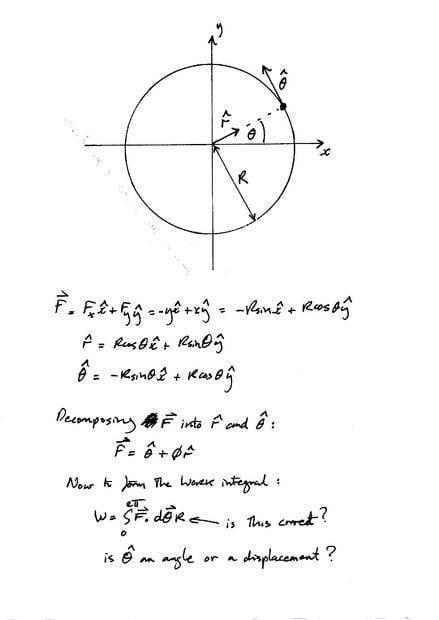 y
θ̂
r̂
θ
x
R
F⃗ = Fₓx̂ + F_yŷ = -yx̂ + xŷ = -Rsinx̂ + Rcosθŷ
r̂ = Rcosθx̂ + Rsinθŷ
θ̂ = -Rsinθx̂ + Rcosθŷ
Decomposing F⃗ into r̂ and θ̂ :
F⃗ = θ̂ + ∅r̂
Now to form the work integral :
W = ∫₀^2π F⃗ . dθ⃗R ← is this correct?
is θ̂ an angle or a displacement ?